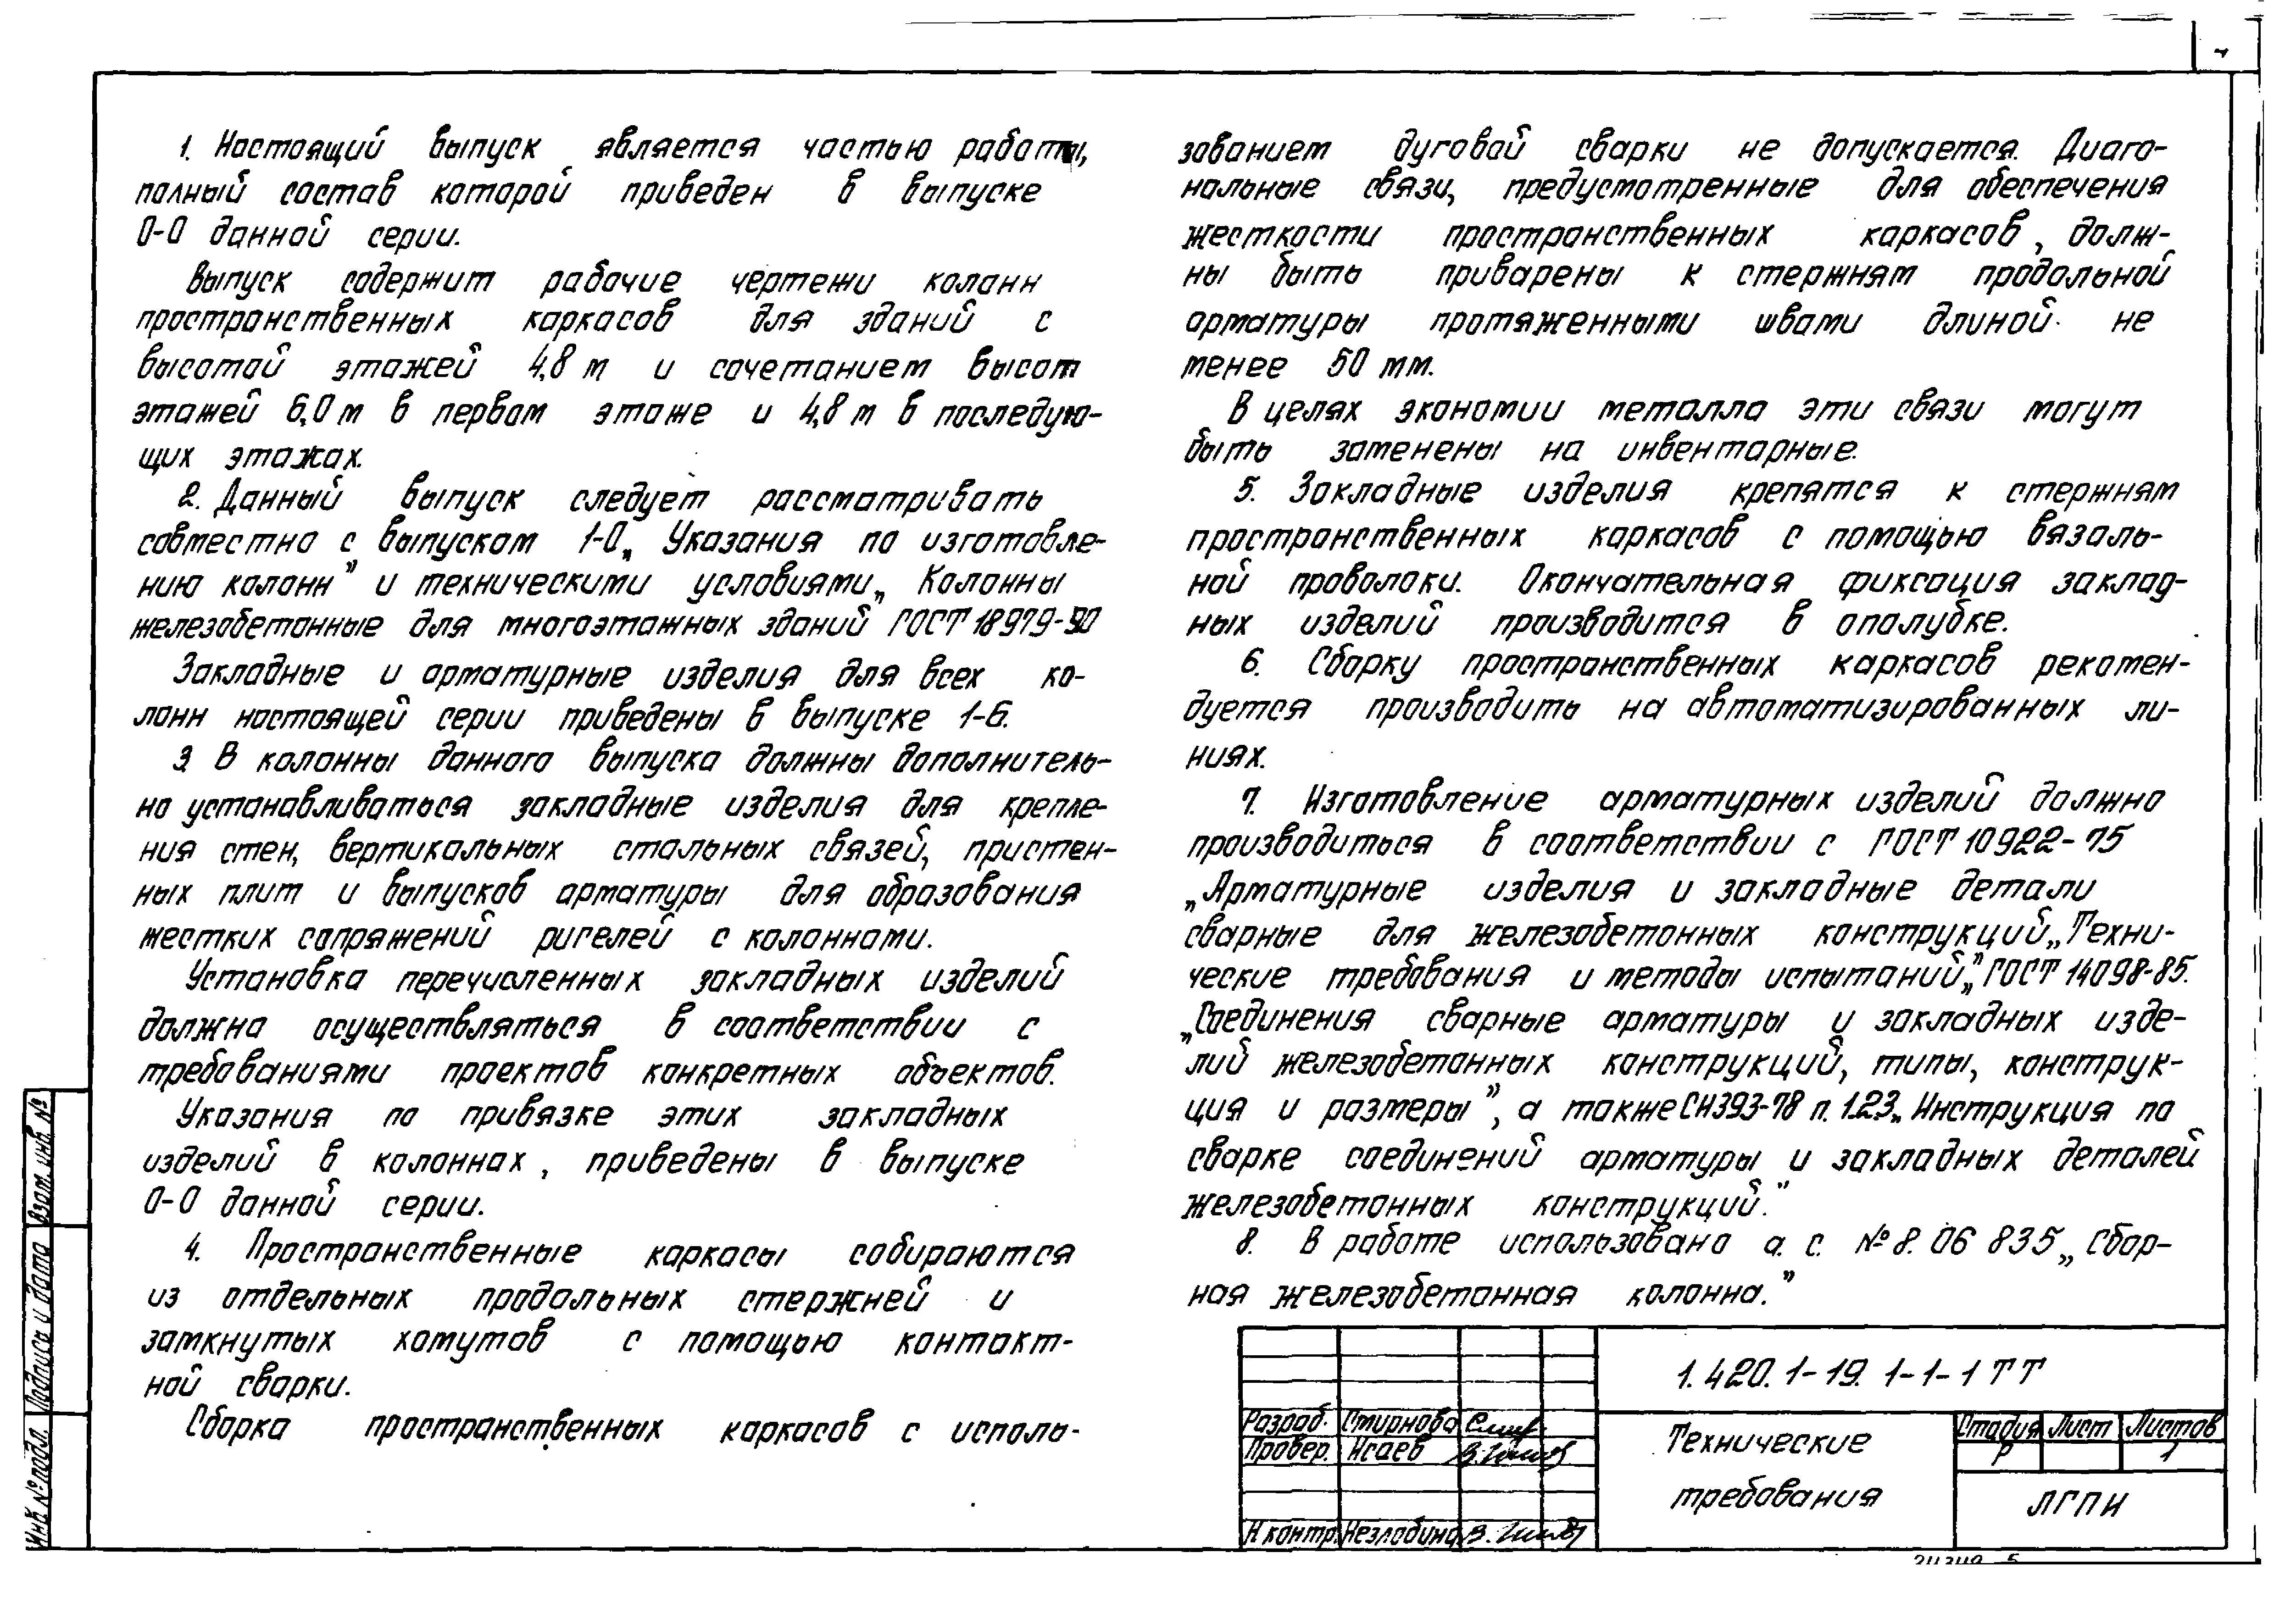 1. Настоящий выпуск является частью работы,
полный состав которой приведен в выпуске
0-0 данной серии.
Выпуск содержит рабочие чертежи колонн
пространственных каркасов для зданий с
высотой этажей 4,8 м и сочетанием высот
этажей 6,0 м в первом этаже и 4,8 м в последую-
щих этажах.
2. Данный выпуск следует рассматривать
совместно с выпуском 1-0 „Указания по изготовле-
нию колонн" и техническими условиями „Колонны
железобетонные для многоэтажных зданий ГОСТ 18979-90
Закладные и арматурные изделия для всех ко-
лонн настоящей серии приведены в выпуске 1-6.
3. В колонны данного выпуска должны дополнитель-
но устанавливаться закладные изделия для крепле-
ния стен, вертикальных стальных связей, пристен-
ных плит и выпусков арматуры для образования
жестких сопряжений ригелей с колоннами.
Установка перечисленных закладных изделий
должна осуществляться в соответствии с
требованиями проектов конкретных объектов.
Указания по привязке этих закладных
изделий в колоннах, приведены в выпуске
0-0 данной серии.
4. Пространственные каркасы собираются
из отдельных продольных стержней и
замкнутых хомутов с помощью контакт-
ной сварки.
Сборка пространственных каркасов с исполь-
зованием дуговой сварки не допускается. Диаго-
нальные связи, предусмотренные для обеспечения
жесткости пространственных каркасов, долж-
ны быть приварены к стержням продольной
арматуры протяженными швами длиной не
менее 50 мм.
В целях экономии металла эти связи могут
быть заменены на инвентарные.
5. Закладные изделия крепятся к стержням
пространственных каркасов с помощью вязаль-
ной проволоки. Окончательная фиксация заклад-
ных изделий производится в опалубке.
6. Сборку пространственных каркасов рекомен-
дуется производить на автоматизированных ли-
ниях.
7. Изготовление арматурных изделий должно
производиться в соответствии с ГОСТ 10922-75
„Арматурные изделия и закладные детали
сварные для железобетонных конструкций „Техни-
ческие требования и методы испытаний", ГОСТ 14098-85.
„Соединения сварные арматуры и закладных изде-
лий железобетонных конструкций, типы, конструк-
ция и размеры", а также СН393-78 п. 1.23 „Инструкция по
сварке соединений арматуры и закладных деталей
железобетонных конструкций."
8. В работе использовано а. с. №8.06 835 „Сбор-
ная железобетонная колонна."
1.420.1-19. 1-1-1 ТТ
Разраб. Смирнова
Провер. Исаев
Н контр. Незлобина
Технические
требования
Стадия Лист Листов
Р 1
ЛГПИ
Взам. инв. №
Подпись и дата
Инв № подл.